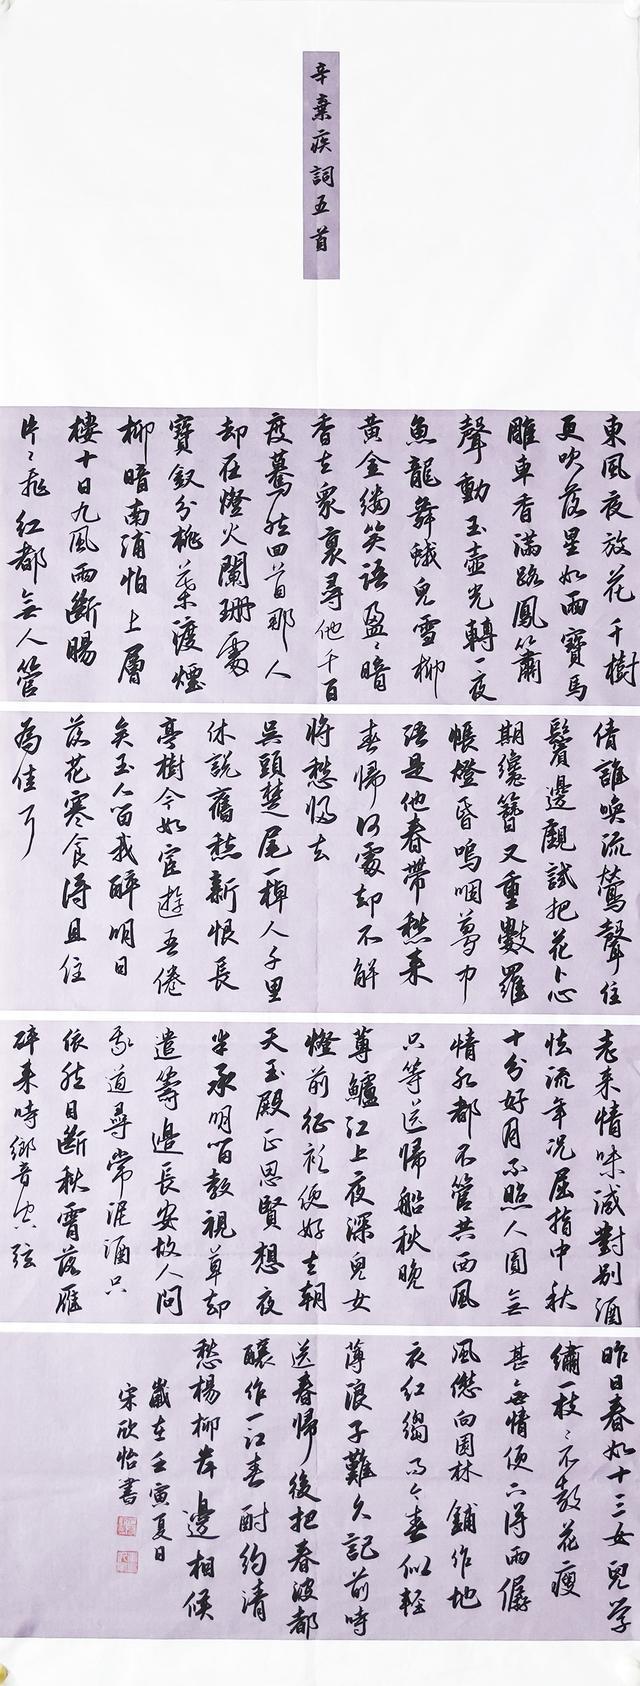 辛棄疾詞五首
東風夜放花千樹
更吹落星如雨寶馬
雕車香滿路鳳簫
聲動玉壺光轉一夜
魚龍舞蛾兒雪柳
黃金縷笑語盈〻暗
香去眾裏尋他千百
度驀然回首那人
却在燈火闌珊處
寶釵分桃葉渡煙
柳暗南浦怕上層
樓十日九風雨斷腸
片〻飛紅都無人管
倩誰喚流鶯聲住
鬢邊覷試把花卜心
期纔簪又重數羅
帳燈昏嗚咽夢中
語是他春帶愁來
春歸何處却不解
將愁歸去
吳頭楚尾一棹人千里
休說舊愁新恨長
亭樹今如宦遊吾倦
矣玉人留我醉明日
落花寒食得且住
為佳耳
老來情味減對別酒
怯流年况屈指中秋
十分好月不照人圓無
情水都不管共西風
只等送歸船秋晚
蓴鱸江上夜深兒女
燈前征衫便好去朝
天玉殿正思賢想夜
半承明留教視草却
遣籌邊長安故人問
我道尋常泥酒只
依然目斷秋霄落雁
醉來時響空弦
昨日春如十三女兒學
繡一枝〻不教花瘦
甚無情便下得雨僝
風僽向園林鋪作地
衣紅縐而今春似輕
薄浪子難久記前時
送春歸後把春波都
釀作一江春酎約清
愁楊柳岸邊相候
歲在壬寅夏日
宋欣怡書